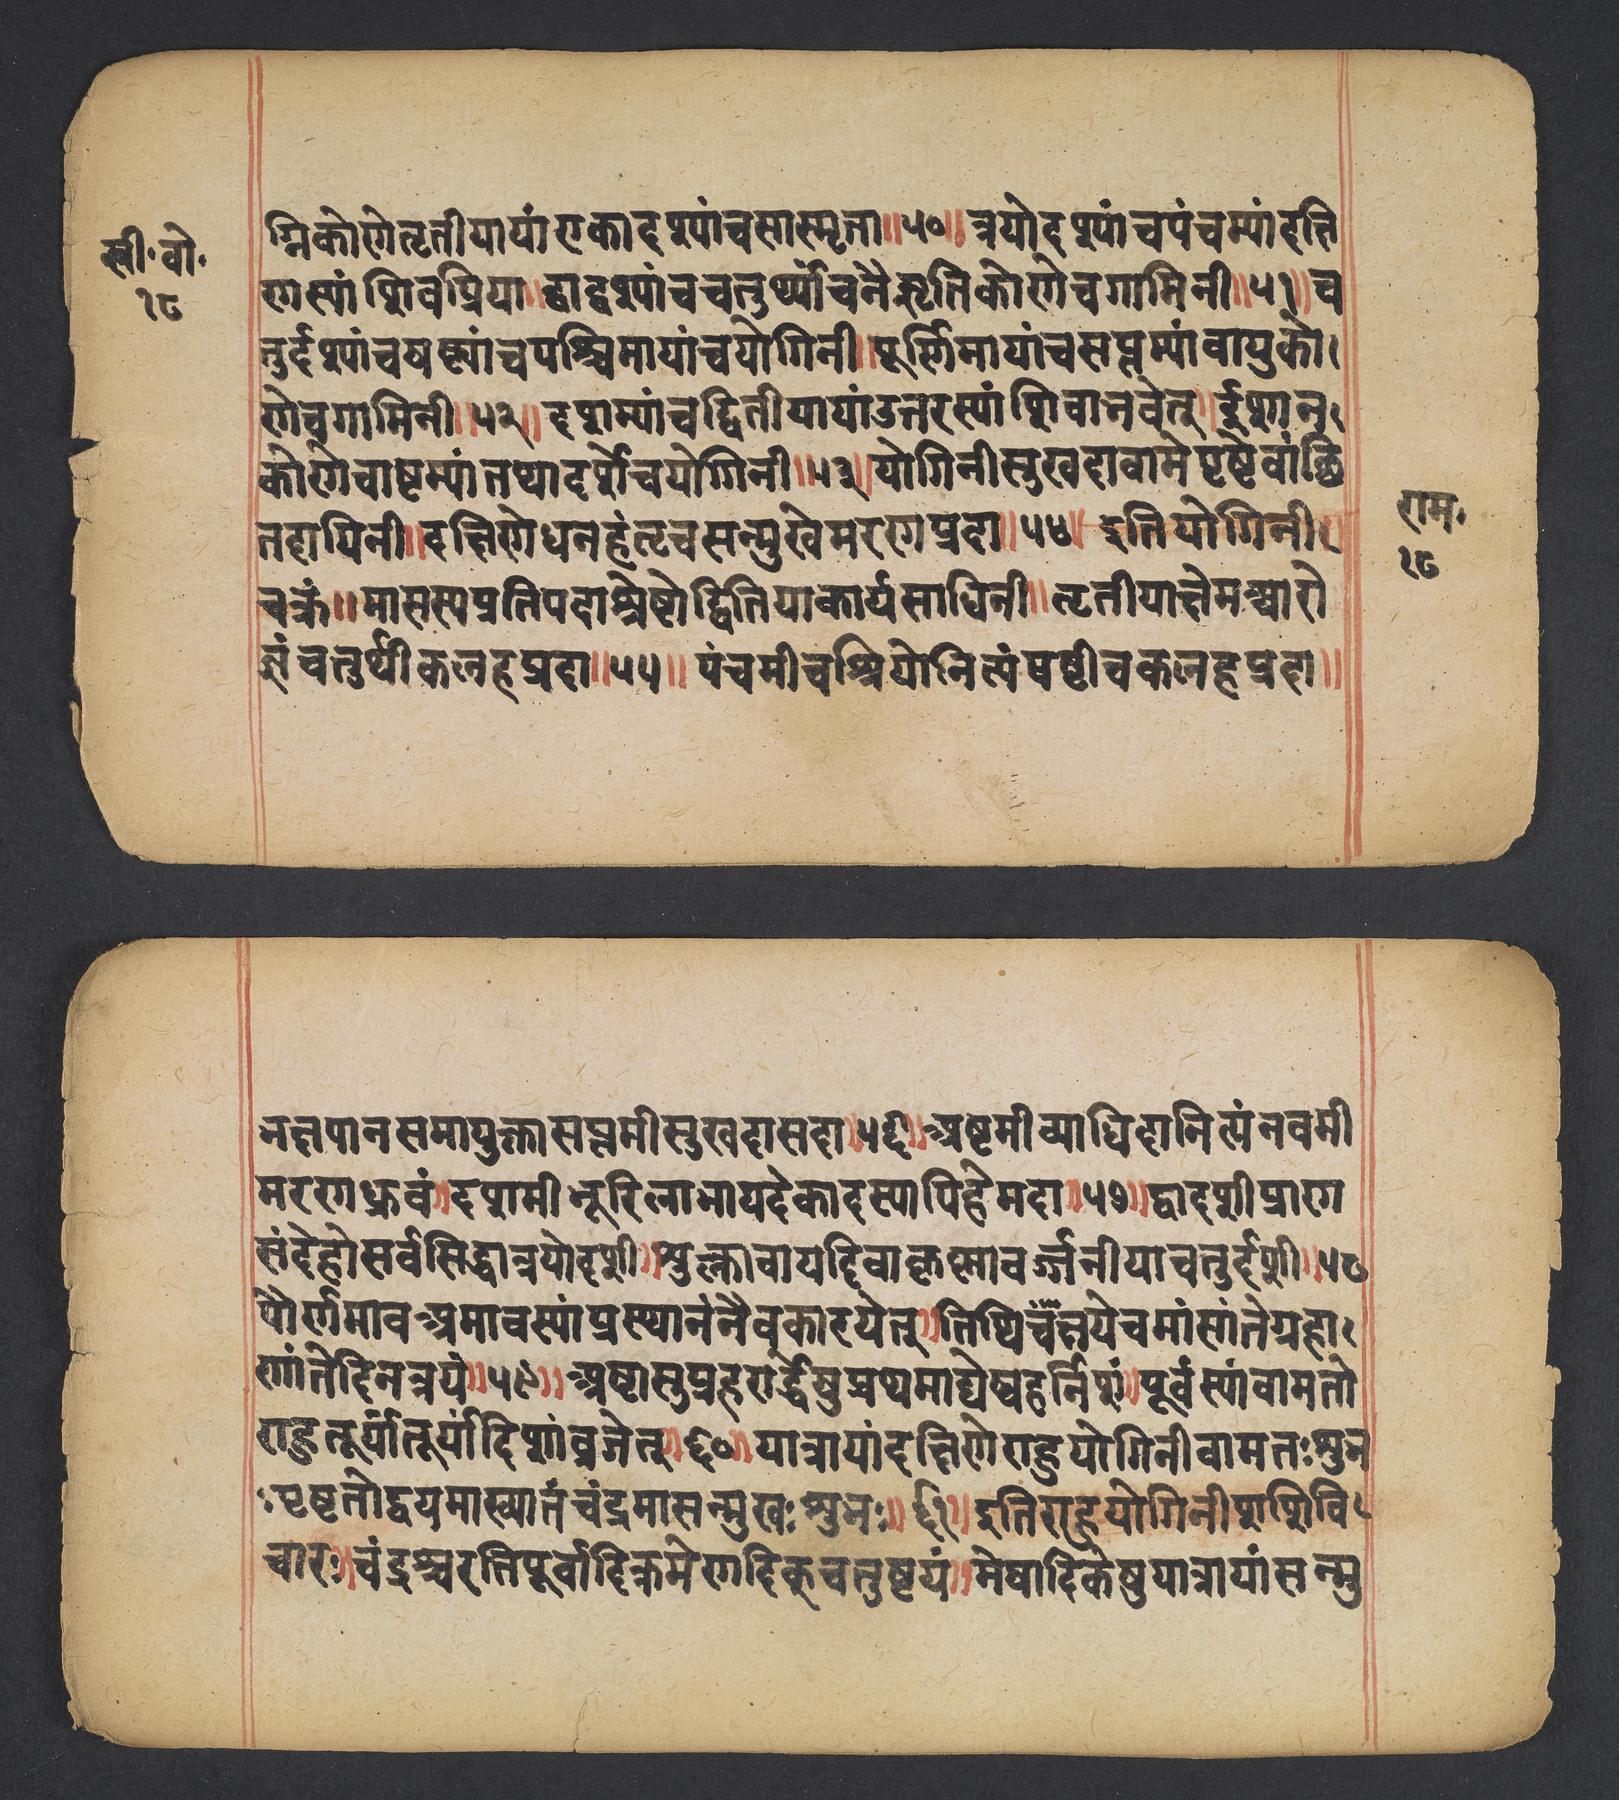 स्त्री॰वो॰
१८
ग्निकोणेतृतीयायांएकादश्यांचसास्मृता॥५०॥त्रयोदश्यांचपंचम्यांदक्षि
णस्यांशिवप्रिया॥द्वाद्वश्यांचचतुर्थ्यांचनैरृतिकोणेचगामिनी॥५१॥च
तुर्दश्यांचषष्ठ्यांचपश्चिमायांचयोगिनी॥पूर्णिमायांचसप्तम्यांवायुको
णेचगामिनी॥५२॥दशम्यांचद्वितीयायांउत्तरस्यांशिवानवेत्॥ईशान
कोणेचाष्टम्यांतथादर्शेचयोगिनी॥५३॥योगिनीसुखदावामेपृष्टेवांछि
तदायिनी॥दक्षिणेधनहंतृचसन्मुखेमरणप्रदा॥५४॥इतियोगिनी
चक्रं॥मासस्यप्रतिपदाश्रेष्टोद्वितियाकार्यसाधिनी॥तृतीयाक्षेमआरो
ज्ञंचतुर्थीकलहप्रदा॥५५॥पंचमीचश्रियोनित्यंषष्टीचकलहप्रदा॥
राम॰
१८
भक्षपानसमायुक्तासप्तमीसुखदासदा॥५६॥अष्टमीव्याधिदानित्यंनवमी
मरणध्रुवं॥दशमीभूरिलाभायदेकादस्यापिहेमदा॥५७॥द्वादशीप्राण
संदेहोसर्वसिद्धात्रयोदृशी॥शुक्लावायदिवाकृष्मावर्ज्जनीयाचतुर्दशी॥५८
पौर्णमावअमावस्यांप्रस्थानंनैवकारयेत्॥तिथिचंक्षयेचमांसांतेग्रहा
णांतेदिनत्रयं॥५९॥अष्टासुप्रहरार्द्धेषुप्रथमाद्येष्वहर्निशं॥पूर्वस्यांवामतो
राहुतूर्यांतूर्यांदिशांव्रजेत्॥६०॥यात्रायांदक्षिणेराहुयोगिनीवामतःशुभ
ःपृष्टतोद्वयमाख्यातंचंद्रमासन्मुखःशुभः॥६१॥इतिराहूयोगिनीशशिवि
चारः॥चंद्रश्चरतिपूर्वादिक्रमेणदिक्चतुष्टयं॥मेषादिकेषुयात्रायांसन्मु